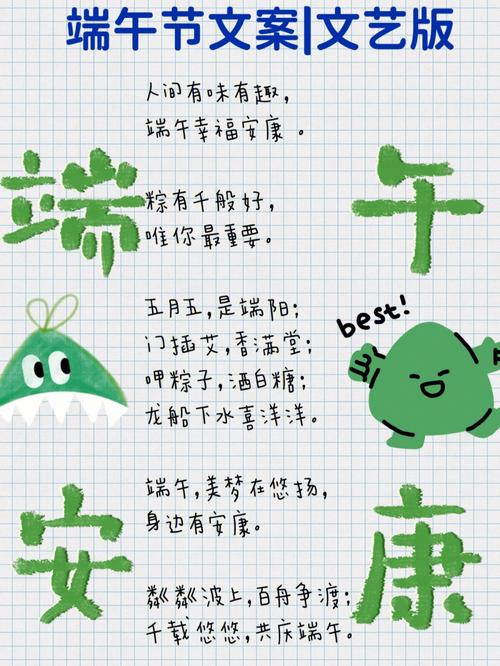 端午节文案|文艺版
人间有味有趣，
端午幸福安康。
端午
粽有千般好，
唯你最重要。
五月五，是端阳；
门插艾，香满堂；
呷粽子，洒白糖；
龙船下水喜洋洋。
best!
端午，美梦在悠扬，
身边有安康。
安康
粼粼波上，百舟争渡；
千载悠悠，共庆端午。